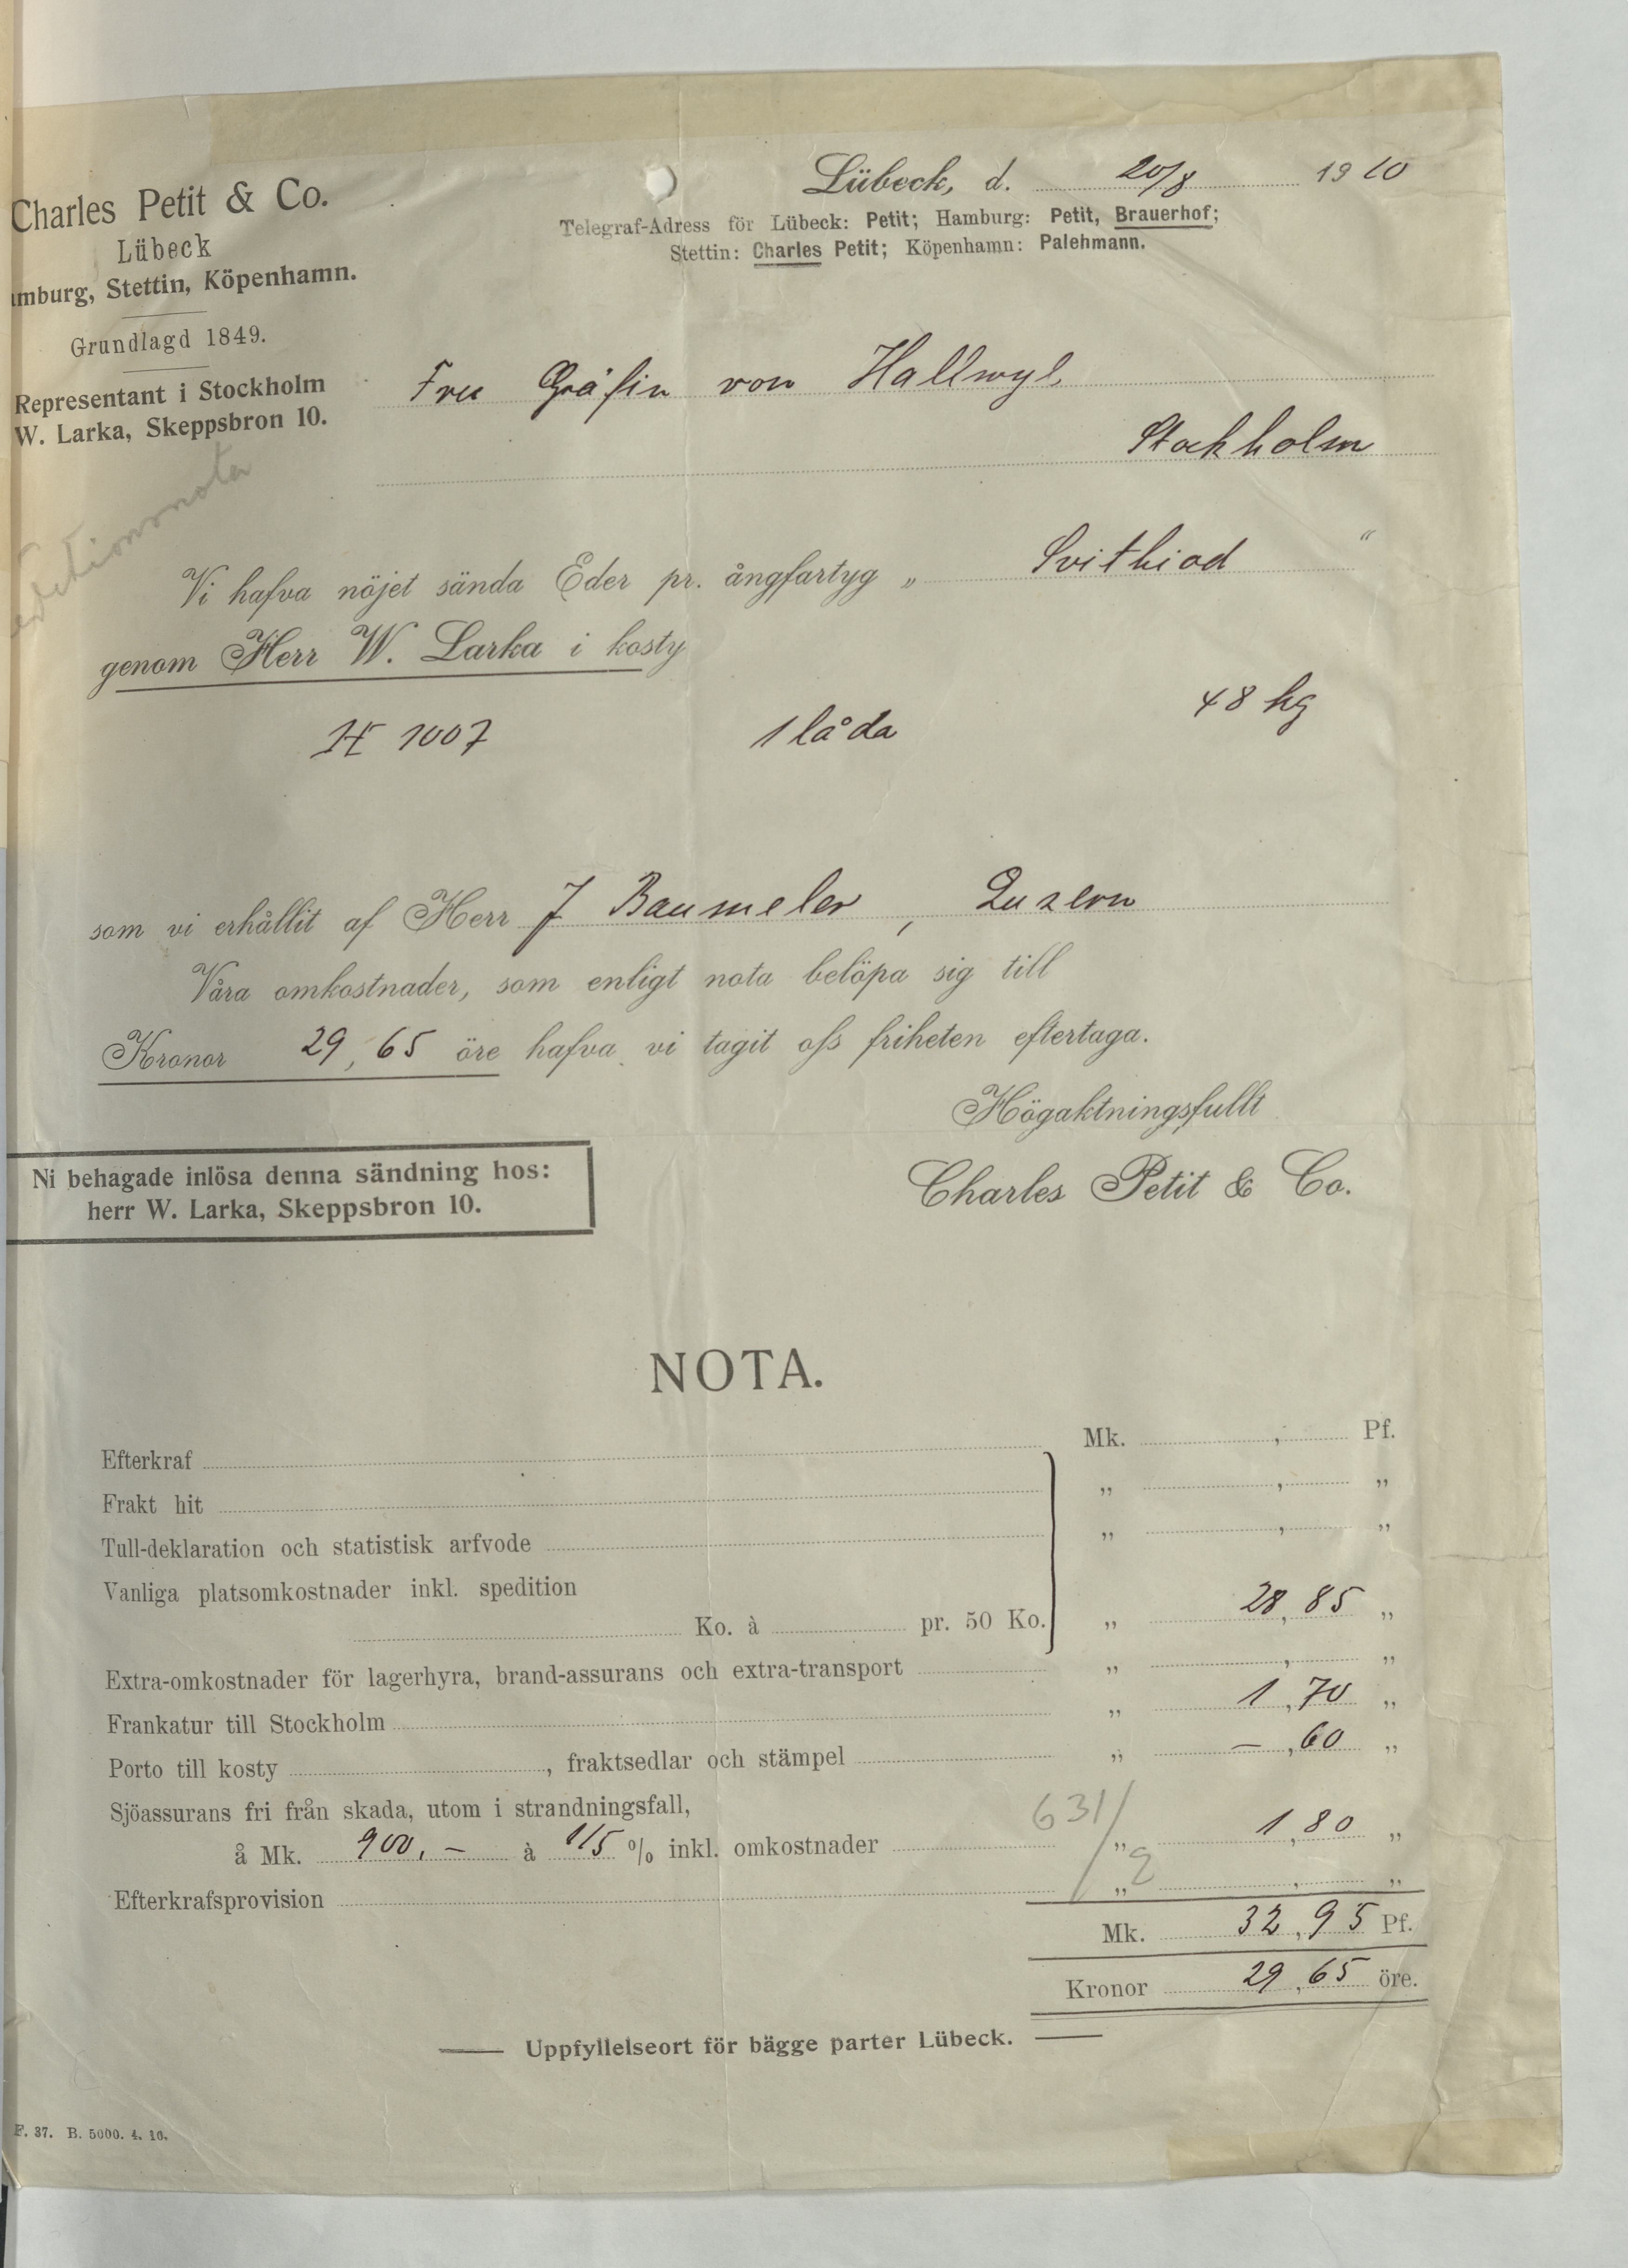 Charles Petit & Co.
Lübeck
amburg, Stettin, Köpenhamn.
Grundlagd 1849.
Representant i Stockholm
W. Larka, Skeppsbron 10.
Lübeck, d. 20/8 1910
Telegraf-Adress för Lübeck: Petit; Hamburg: Petit, Brauerhof;
Stettin: Charles Petit; Köpenhamn: Palehmann.
Frau Gräfin von Hallwyl,
Stockholm
Vi hafva nöjet sända Eder pr. ångfartyg „ Svithiod "
genom Herr W. Larka i kosty
H 1007 1 låda 48 kg
som vi erhållit af Herr J Baumeler, Luzern
Våra omkostnader, som enligt nota belöpa sig till
Kronor 29,65 öre hafva vi tagit oss friheten eftertaga.
Högaktningsfullt
Charles Petit & Co.
Ni behagade inlösa denna sändning hos:
herr W. Larka, Skeppsbron 10.
NOTA.
Efterkraf Mk. , Pf.
Frakt hit „ , „
Tull-deklaration och statistisk arfvode „ , „
Vanliga platsomkostnader inkl. spedition
Ko. à pr. 50 Ko. „ 28,85 „
Extra-omkostnader för lagerhyra, brand-assurans och extra-transport „ , „
Frankatur till Stockholm „ 1,70 „
Porto till kosty , fraktsedlar och stämpel „ —,60 „
Sjöassurans fri från skada, utom i strandningsfall,
å Mk. 900,— à 1/5 % inkl. omkostnader „ 1,80 „
631/2
Efterkrafsprovision „ , „
Mk. 32,95 Pf.
Kronor 29,65 öre.
— Uppfyllelseort för bägge parter Lübeck. —
F. 37. B. 5000. 4. 10.